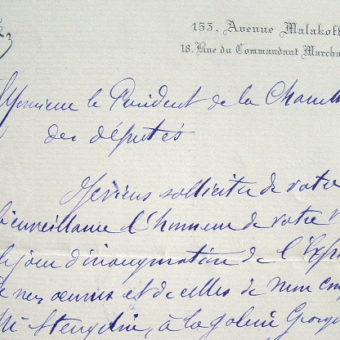 153, Avenue Malakoff
18, Rue du Commandant Marcha
Monsieur le Président de la Cham
des députés
Je viens solliciter de votre
bienveillance l'honneur de votre
le jour d'inauguration de l'Expo
de mes œuvres et de celles de mon
à la galerie George